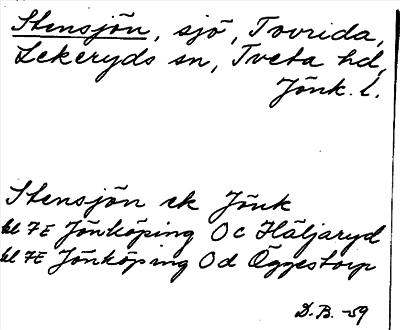 Stensjön, sjö, Tovrida,
Lekeryds sn, Tveta hd,
Jönk. l.
Stensjön ek Jönk
bl 7E Jönköping 0c Häljaryd
bl 7E Jönköping 0d Öggestorp
D.B. -59